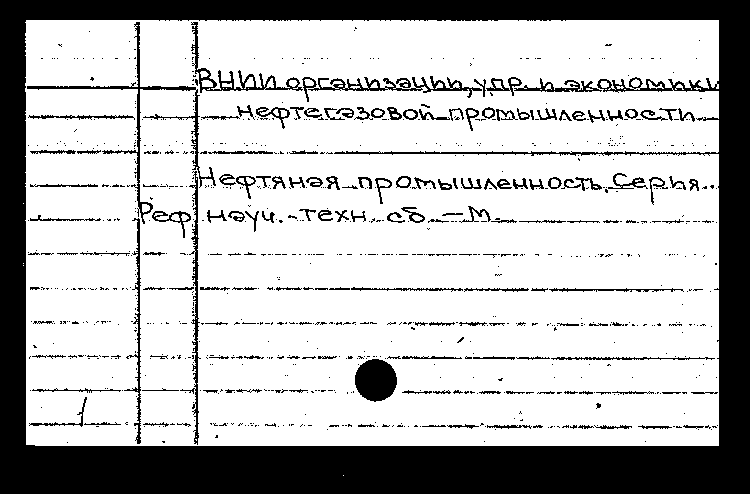 ВНИИ организации, упр. и экономики
нефтегазовой промышленности
Нефтяная промышленность. Серия..
Реф. науч.-техн. сб. – М.
1